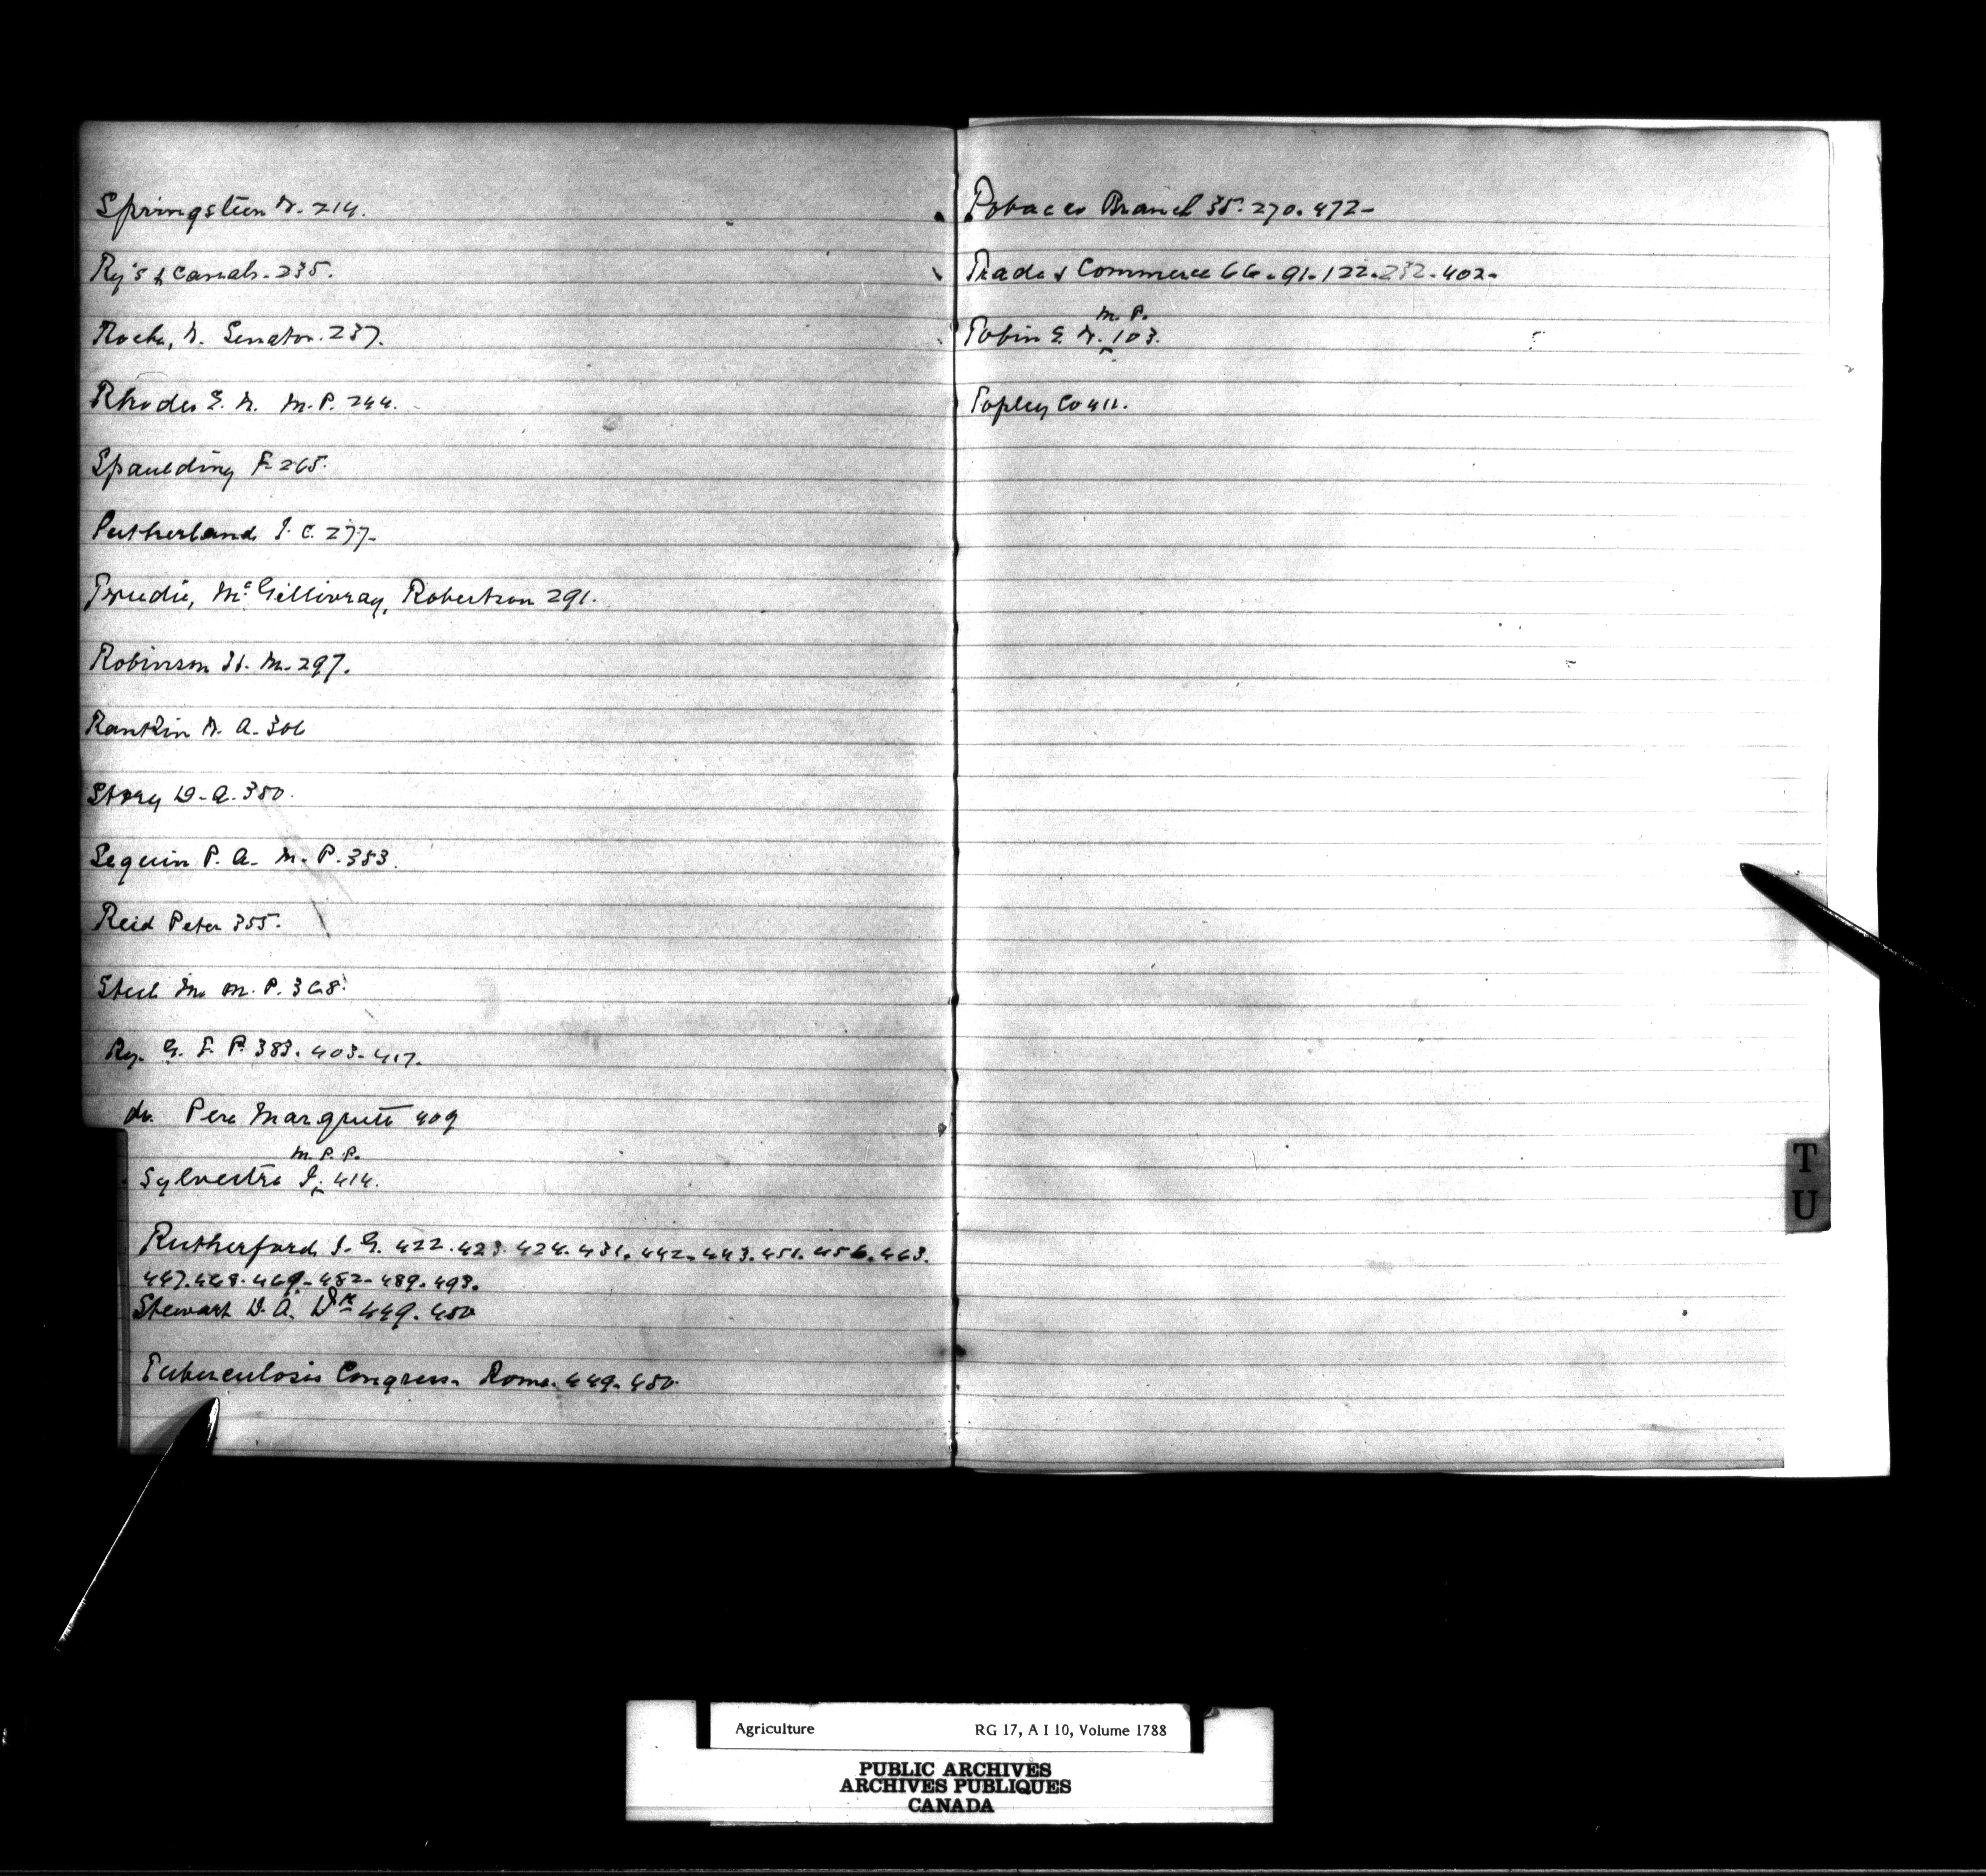 Springsteen W. 214.
Ry's & Canals. 235.
Roche, W. Senator. 237.
Rhodes E. N. M.P. 244.
Spaulding F. 265.
Sutherland J. C. 277-
McGillivray, Robertson 291.
Robinson H. M. 297.
Rankin W. A. 306
Story D. A. 350.
Seguin P. A. M. P. 353.
Reid Peter 355.
Steele M. M. P. 368.
Ry. G. T. P. 383. 403. 417.
do. Pere Marquette 409
M. P. P.
Sylvestre J. 414.
Rutherford J. G. 422. 423. 424. 431. 442. 443. 451. 456. 463.
467. 468. 469. 482. 489. 493.
Stewart D. A. Dr. 449. 450
Tuberculosis Congress. Rome. 449. 450.
Tobacco Branch 35. 270. 472-
Trade & Commerce 66. 91. 122. 232. 402.
M. P.
Tobin E. W. 103.
Topley Co 411.
T
U
Agriculture RG 17, A I 10, Volume 1788
PUBLIC ARCHIVES
ARCHIVES PUBLIQUES
CANADA